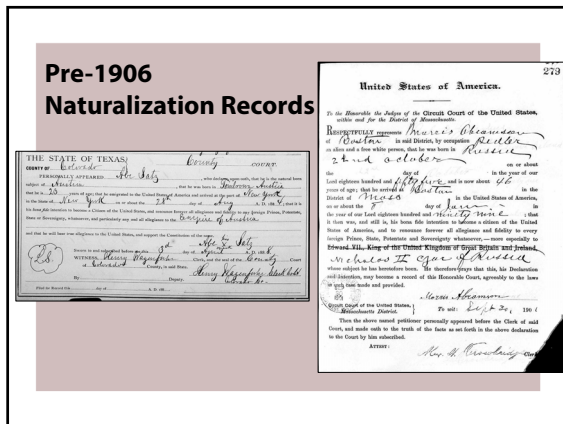 Pre-1906
Naturalization Records
THE STATE OF TEXAS,
COUNTY OF Colorado County COURT.
PERSONALLY APPEARED Abe Satz
who declares, upon oath, that he is the natural born
subject of Austria, that he was born in Austria
that he is 23 years of age; that he emigrated to the United States of America and arrived at the port of New York
in the State of New York on or about the 28th day of Aug A. D. that it is
his bona fide intention to become a Citizen of the United States, and renounce forever all allegiance and fidelity to any foreign Prince, Potentate,
State or Sovereignty, whatsoever, and particularly any and all allegiance to the Empire of Austria
and that he will bear true allegiance to the United States, and support the Constitution of the same.
Abe Satz
Sworn to and subscribed before me this day of April A. D.
WITNESS, Henry Clerk, and the seal of the County Court
of Colorado County, in said State.
Henry Clerk
By Deputy.
279
United States of America.
To the Honorable the Judges of the Circuit Court of the United States,
within and for the District of Massachusetts.
RESPECTFULLY represents Morris Abramson
of Boston in said District, by occupation Pedler
an alien and a free white person, that he was born in Russia
22nd October on or about
the day of in the year of our
Lord eighteen hundred and fifty five, and is now about 46
years of age; that he arrived at Boston in the
District of Mass in the United States of America,
on or about the 8 day of in
the year of our Lord eighteen hundred and ninety nine; that
it then was, and still is, his bona fide intention to become a citizen of the United
States of America, and to renounce forever all allegiance and fidelity to every
foreign Prince, State, Potentate and Sovereignty whatsoever,—more especially to
Edward VII., King of the United Kingdom of Great Britain and Ireland,
Nicholas II czar of Russia
whose subject he has heretofore been. He therefore prays that this, his Declaration
and Intention, may become a record of this Honorable Court, agreeably to the laws
in such case made and provided.
Morris Abramson
Circuit Court of the United States,
Massachusetts District. To wit: Sept 30, 1901
Then the above named petitioner personally appeared before the Clerk of said
Court, and made oath to the truth of the facts as set forth in the above declaration
to the Court by him subscribed.
ATTEST:
Clerk